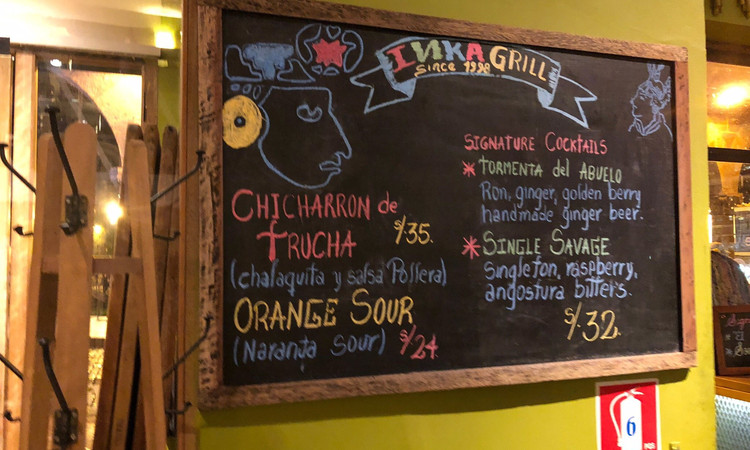 INKA GRILL
Since 1998
CHICHARRON de
TRUCHA S/35.
(chalaquita y salsa Pollera)
ORANGE SOUR
(Naranja Sour) S/24
SIGNATURE COCKTAILS
* TORMENTA del ABUELO
Ron, ginger, golden berry
handmade ginger beer.
* SINGLE SAVAGE
Singleton, raspberry,
angostura bitters.
S/32.
6